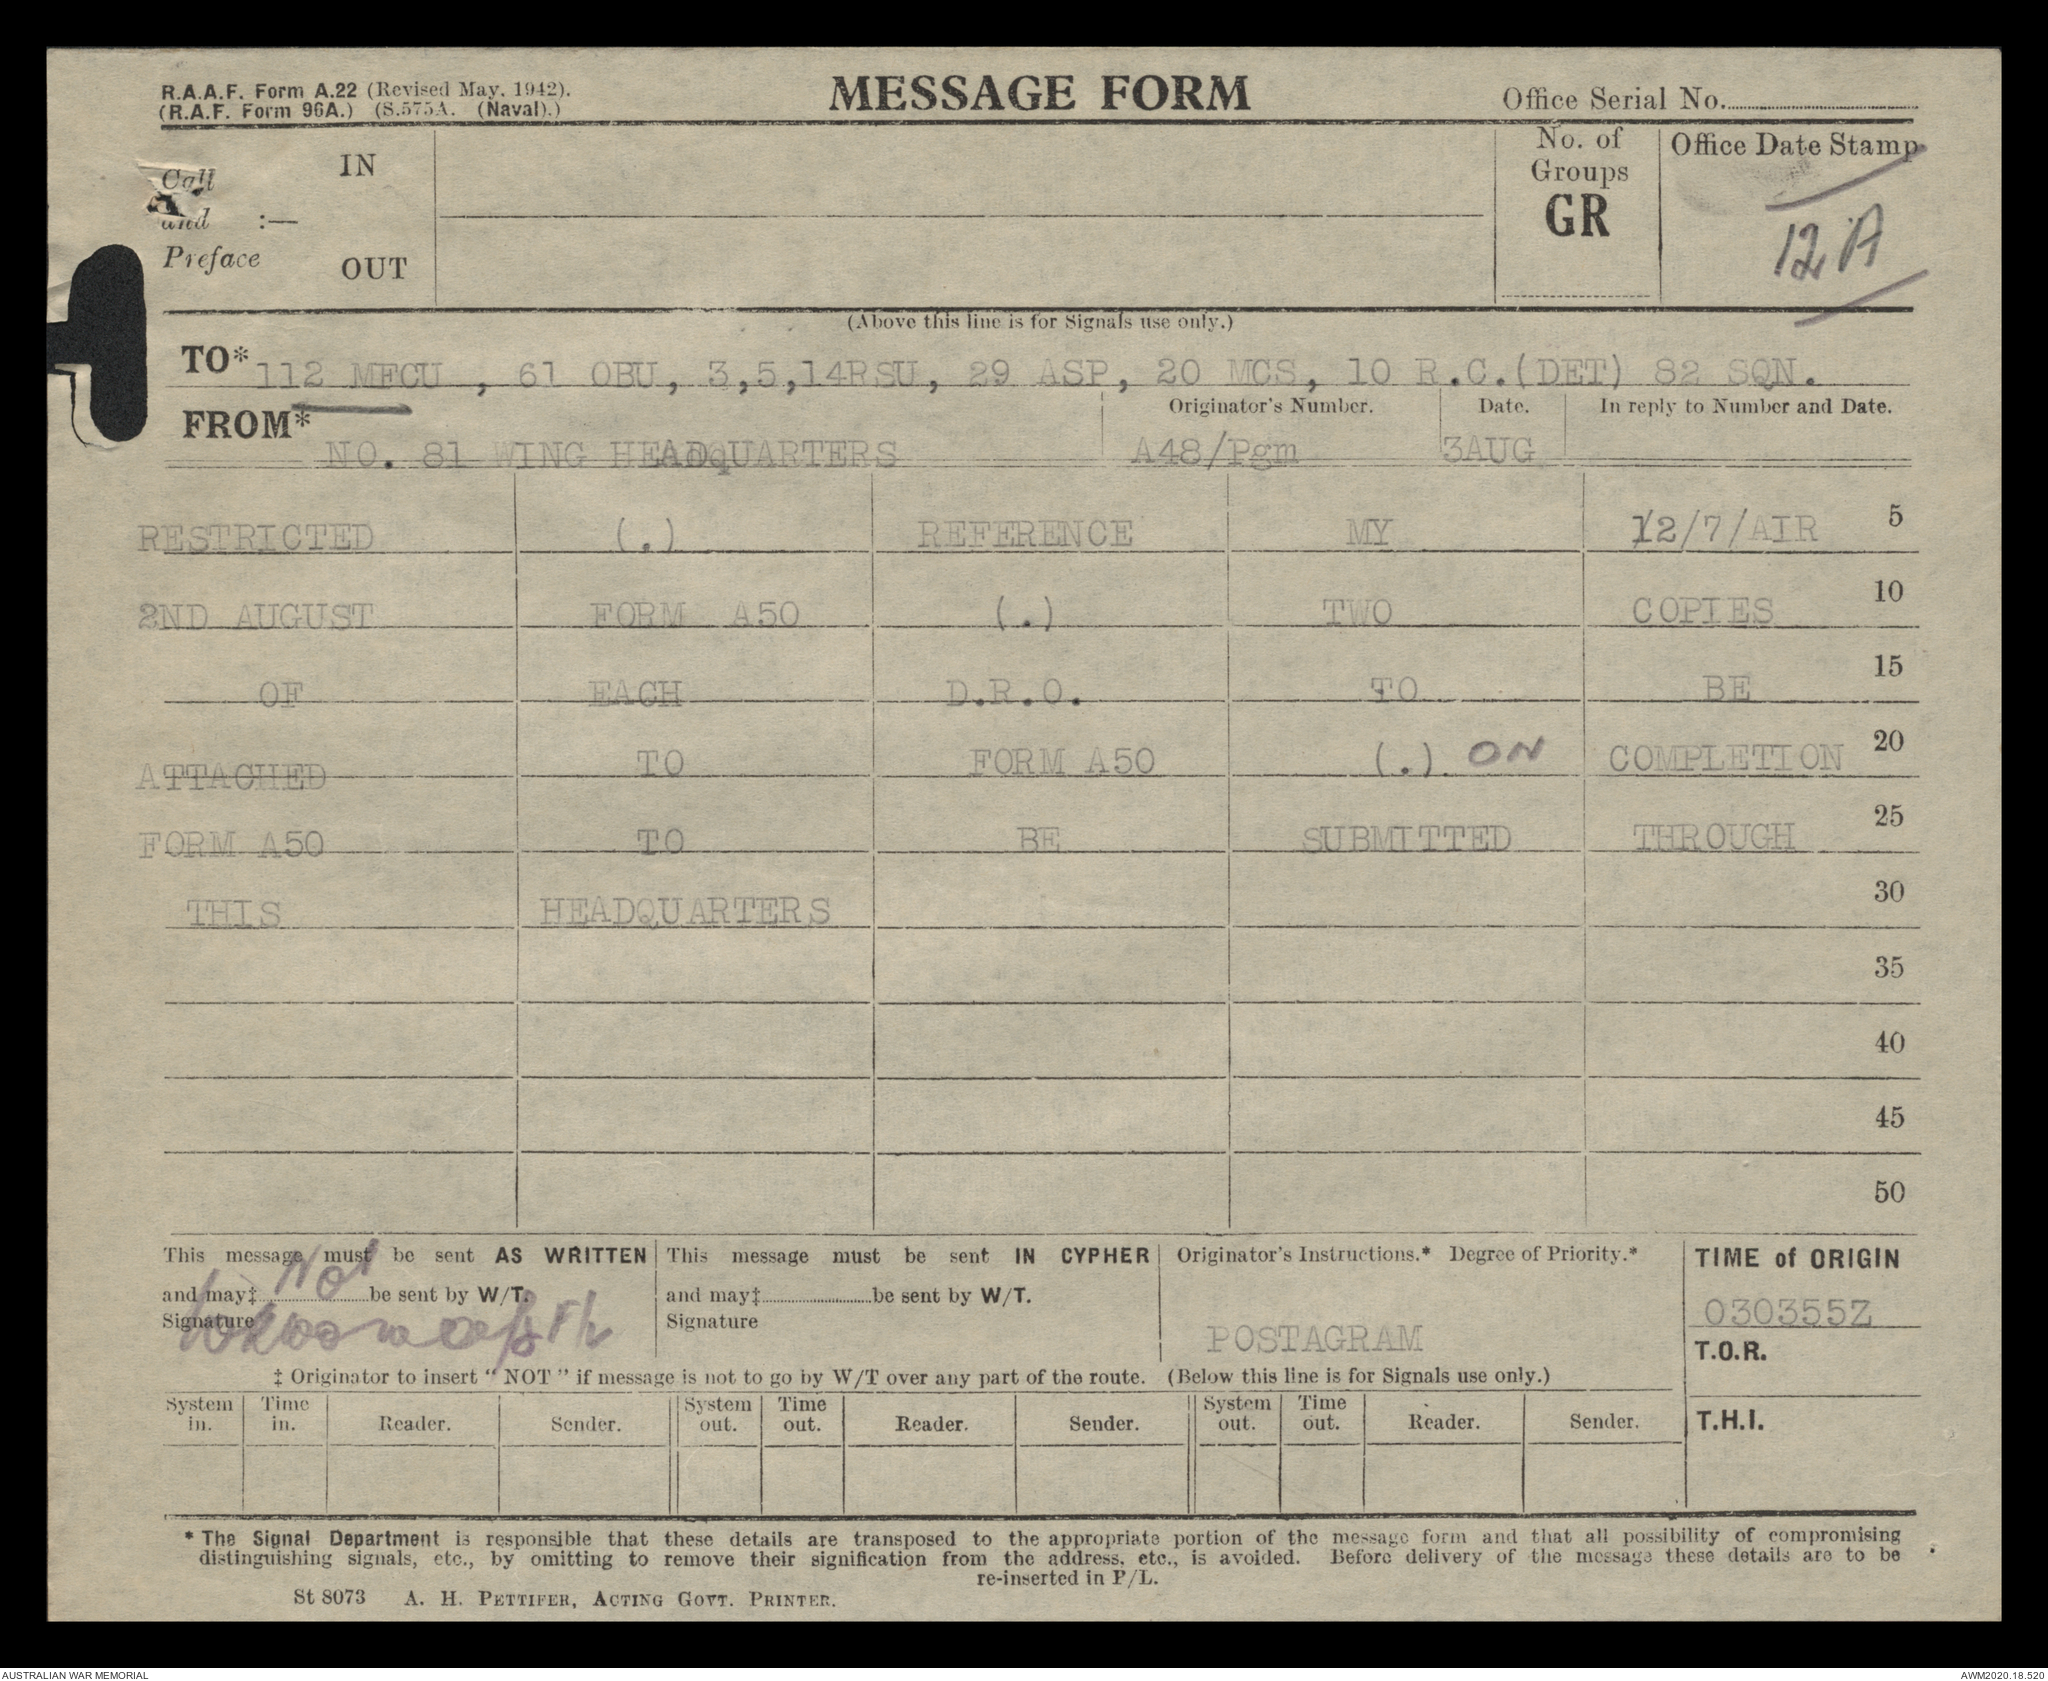 R.A.A.F. Form A.22 (Revised May, 1942).
(R.A.F. Form 96A.) (S.575A. (Naval).)
MESSAGE FORM
Office Serial No.
Call
and :—
Preface
IN
OUT
No. of
Groups
GR
Office Date Stamp
12A
(Above this line is for Signals use only.)
TO* 112 MFCU , 61 OBU, 3,5,14RSU, 29 ASP, 20 MCS, 10 R.C.(DET) 82 SQN.
FROM* NO. 81 WING HEADQUARTERS
Originator's Number. Date. In reply to Number and Date.
A48/Pgm 3AUG
RESTRICTED (.) REFERENCE MY 12/7/AIR 5
2ND AUGUST FORM A50 (.) TWO COPIES 10
OF EACH D.R.O. TO BE 15
ATTACHED TO FORM A50 (.) ON COMPLETION 20
FORM A50 TO BE SUBMITTED THROUGH 25
THIS HEADQUARTERS 30
35
40
45
50
This message must be sent AS WRITTEN
and may‡ Not be sent by W/T.
Signature
This message must be sent IN CYPHER
and may‡ be sent by W/T.
Signature
Originator's Instructions.* Degree of Priority.*
POSTAGRAM
TIME of ORIGIN
030355Z
T.O.R.
T.H.I.
‡ Originator to insert "NOT" if message is not to go by W/T over any part of the route. (Below this line is for Signals use only.)
System in. Time in. Reader. Sender. System out. Time out. Reader. Sender. System out. Time out. Reader. Sender.
* The Signal Department is responsible that these details are transposed to the appropriate portion of the message form and that all possibility of compromising
distinguishing signals, etc., by omitting to remove their signification from the address, etc., is avoided. Before delivery of the message these details are to be
re-inserted in P/L.
St 8073 A. H. PETTIFER, ACTING GOVT. PRINTER.
AUSTRALIAN WAR MEMORIAL
AWM2020.18.520